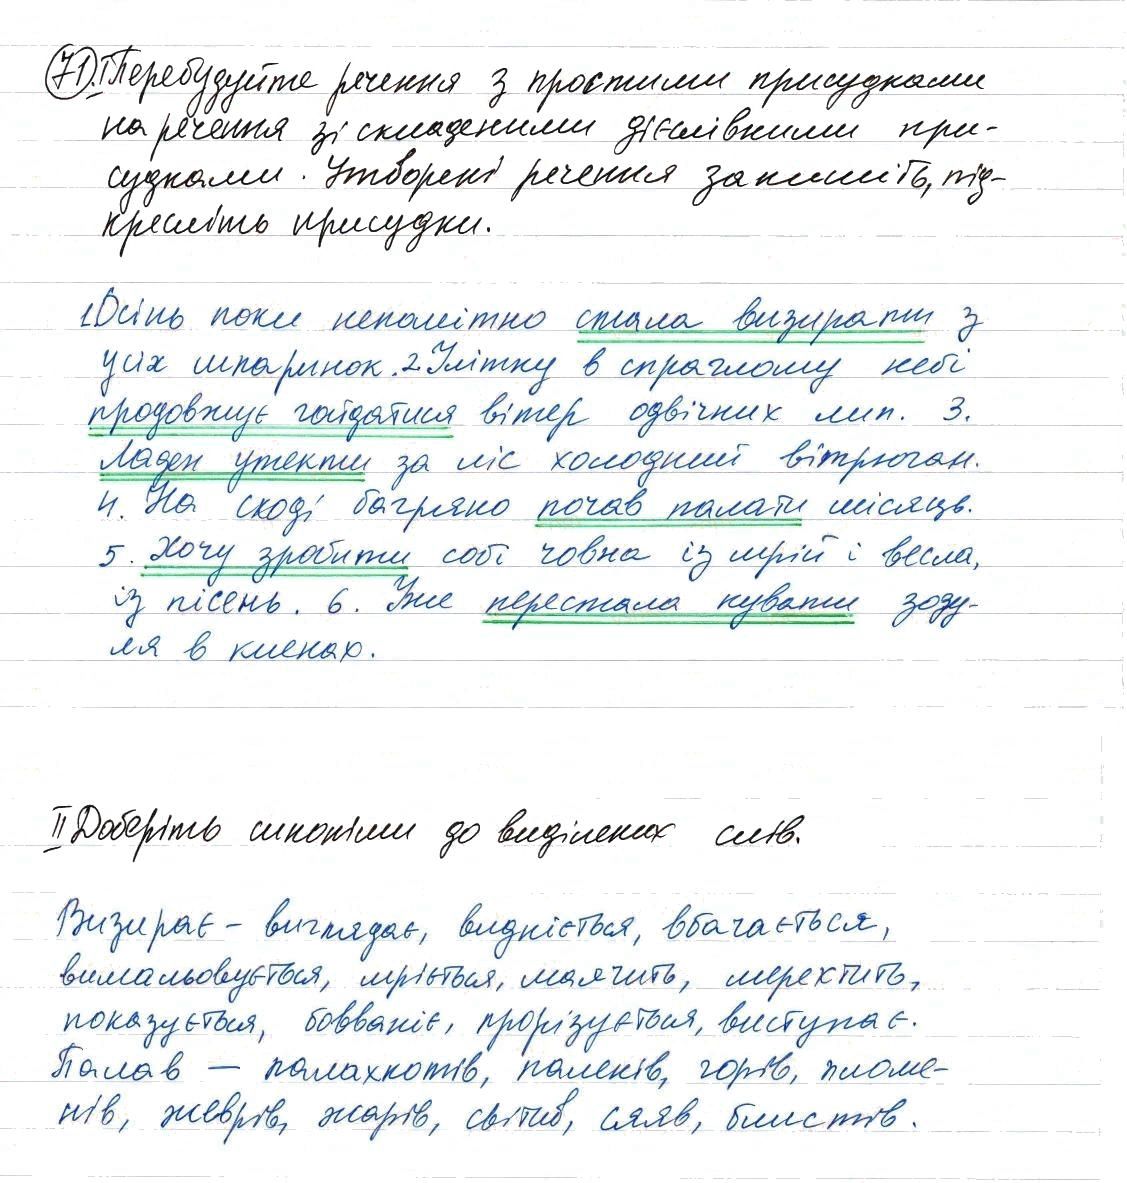 71. I Перебудуйте речення з простими присудками
на речення зі складеними дієслівними при-
судками. Утворені речення запишіть, під-
кресліть присудки.
1. Осінь поки непомітно стала визирати з
усіх шпаринок. 2. Улітку в спраглому небі
продовжує гойдатися вітер одвічних лип. 3.
Ладен утекти за ліс холодний вітрюган.
4. На сході багряно почав палати місяць.
5. Хочу зробити собі човна із мрій і весла,
із пісень. 6. Уже перестала кувати зозу-
ля в кленах.
II Доберіть синоніми до виділених слів.
Визирає – виглядає, видніється, вбачається,
вимальовується, мріється, маячить, мерехтить,
показується, бовваніє, прорізується, виступає.
Палав – палахкотів, паленів, горів, пломе-
нів, жеврів, жарів, світив, сяяв, блистів.